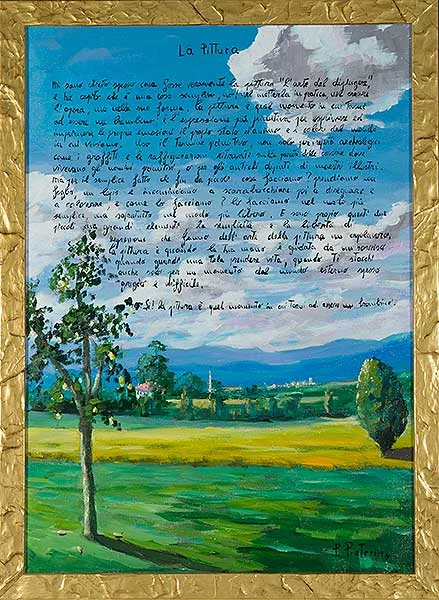 La Pittura
Mi sono chiesto spesso cosa fosse veramente la pittura "L'arte del dipingere",
e ho capito che è una cosa semplice, nel metterla in pratica nel creare
l'opera, ma nella sua forma, la pittura è quel momento in cui torni
ad essere un bambino, è l'espressione più primitiva per esprimere ed
imprimere le proprie emozioni il proprio stato d'animo e i colori del mondo
in cui viviamo. Uso il termine primitivo, non solo per reperti archeologici
come i graffiti e le raffigurazioni ritrovati sulle pareti delle caverne dove
vivevano gli uomini primitivi, o per gli antichi dipinti di maestri illustri,
ma per il semplice fatto che fin da piccoli cosa facciamo? prendiamo un
foglio, un lapis e incominciamo a scarabocchiare poi a disegnare e
a colorare, e come lo facciamo? lo facciamo nel modo più
semplice ma soprattutto nel modo più libero. E sono proprio questi due
piccoli ma grandi elementi la semplicità e la libertà di
espressione che fanno dell'arte della pittura un capolavoro.
La pittura è quando la tua mano è guidata da un sorriso
quando guardi una tela prendere vita, quando ti stacchi
anche solo per un momento dal mondo esterno spesso
grigio e difficile.
Sì! la pittura è quel momento in cui torni ad essere un bambino.
P.